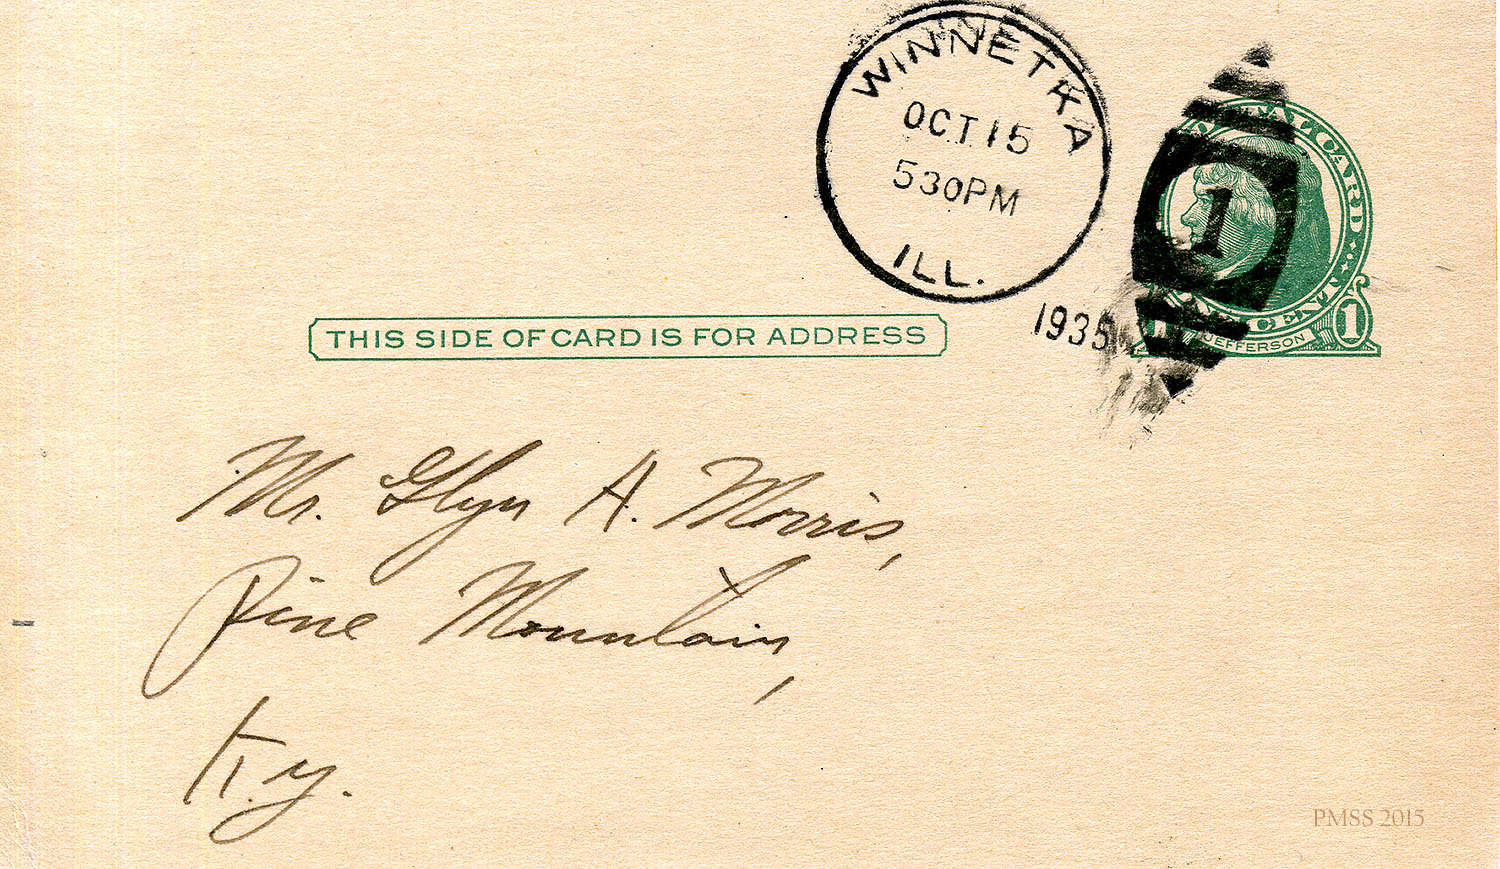 WINNETKA
OCT 15
530PM
ILL.
1935
1
POSTAL CARD
ONE CENT
JEFFERSON
1
THIS SIDE OF CARD IS FOR ADDRESS
Mr. Glyn A. Morris,
Pine Mountain,
Ky.
PMSS 2015